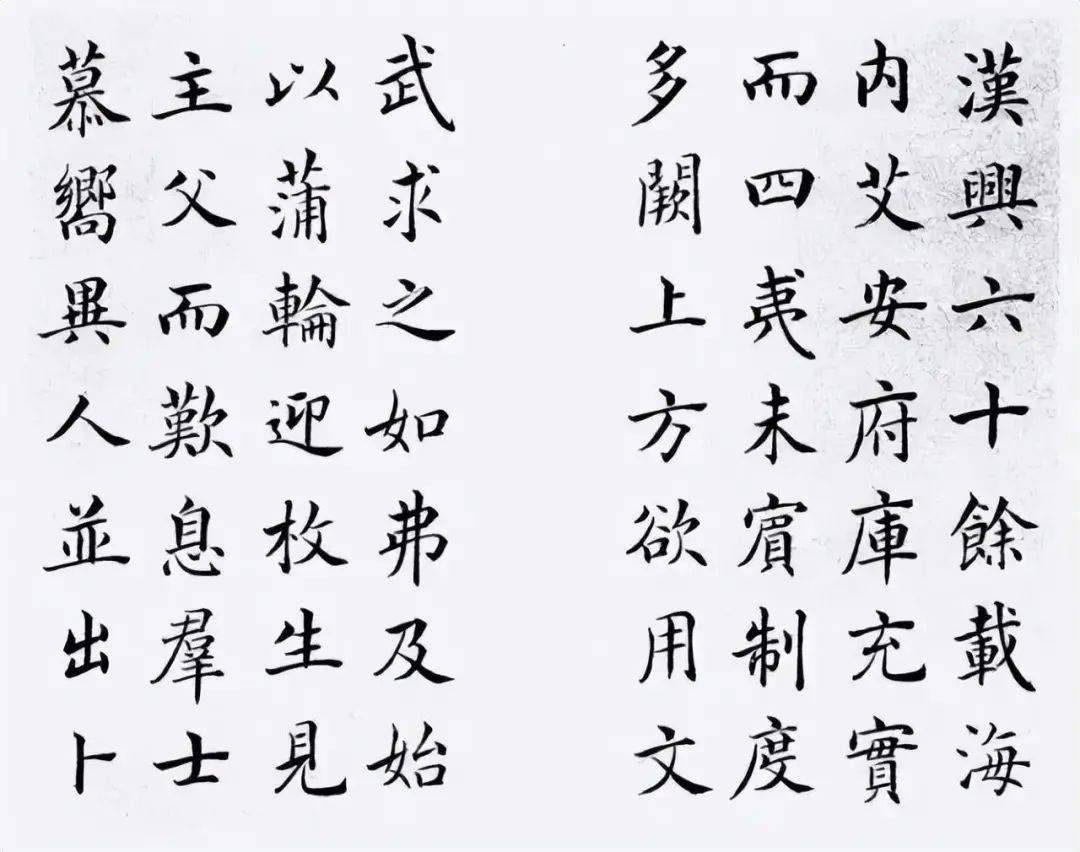 漢興六十餘載海
内艾安府庫充實
而四夷未賓制度
多闕上方欲用文
武求之如弗及始
以蒲輪迎枚生見
主父而歎息羣士
慕嚮異人並出卜